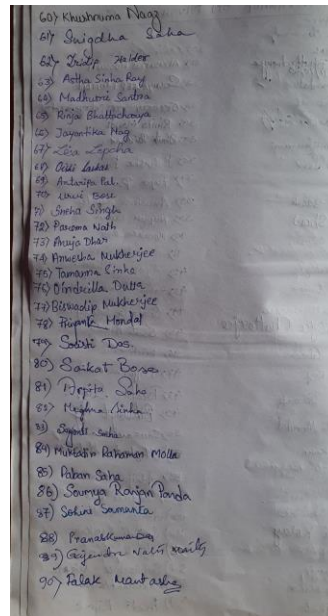 60) Khushnuma Naaz
61) Snigdha Saha
62) Tridip Halder
63) Astha Sinha Ray
64) Madhurai Santra
65) Rinja Bhattacharaya
66) Jayantika Nag
67) Lisa Lepcha
68)
69) Antaripa Pal.
70) Urvi Bose
71) Sneha Singh
72) Parama Nath
73) Anuja Dhar
74) Anwesha Mukherjee
75) Tamanna Sinha
76) Oindrilla Datta
77) Biswadip Mukherjee
78) Priyanta Mondal
79) Sristi Das.
80) Saikat Bose
81) Arpita Saha
82) Meghna Sinha
83) Sayanti Saha
84) Muksatin Rahaman Molla
85) Paban Saha
86) Soumya Ranjan Panda
87) Sohini Samanta
88) Pranab Kumar
89) Gajendra Nath
90) Palak